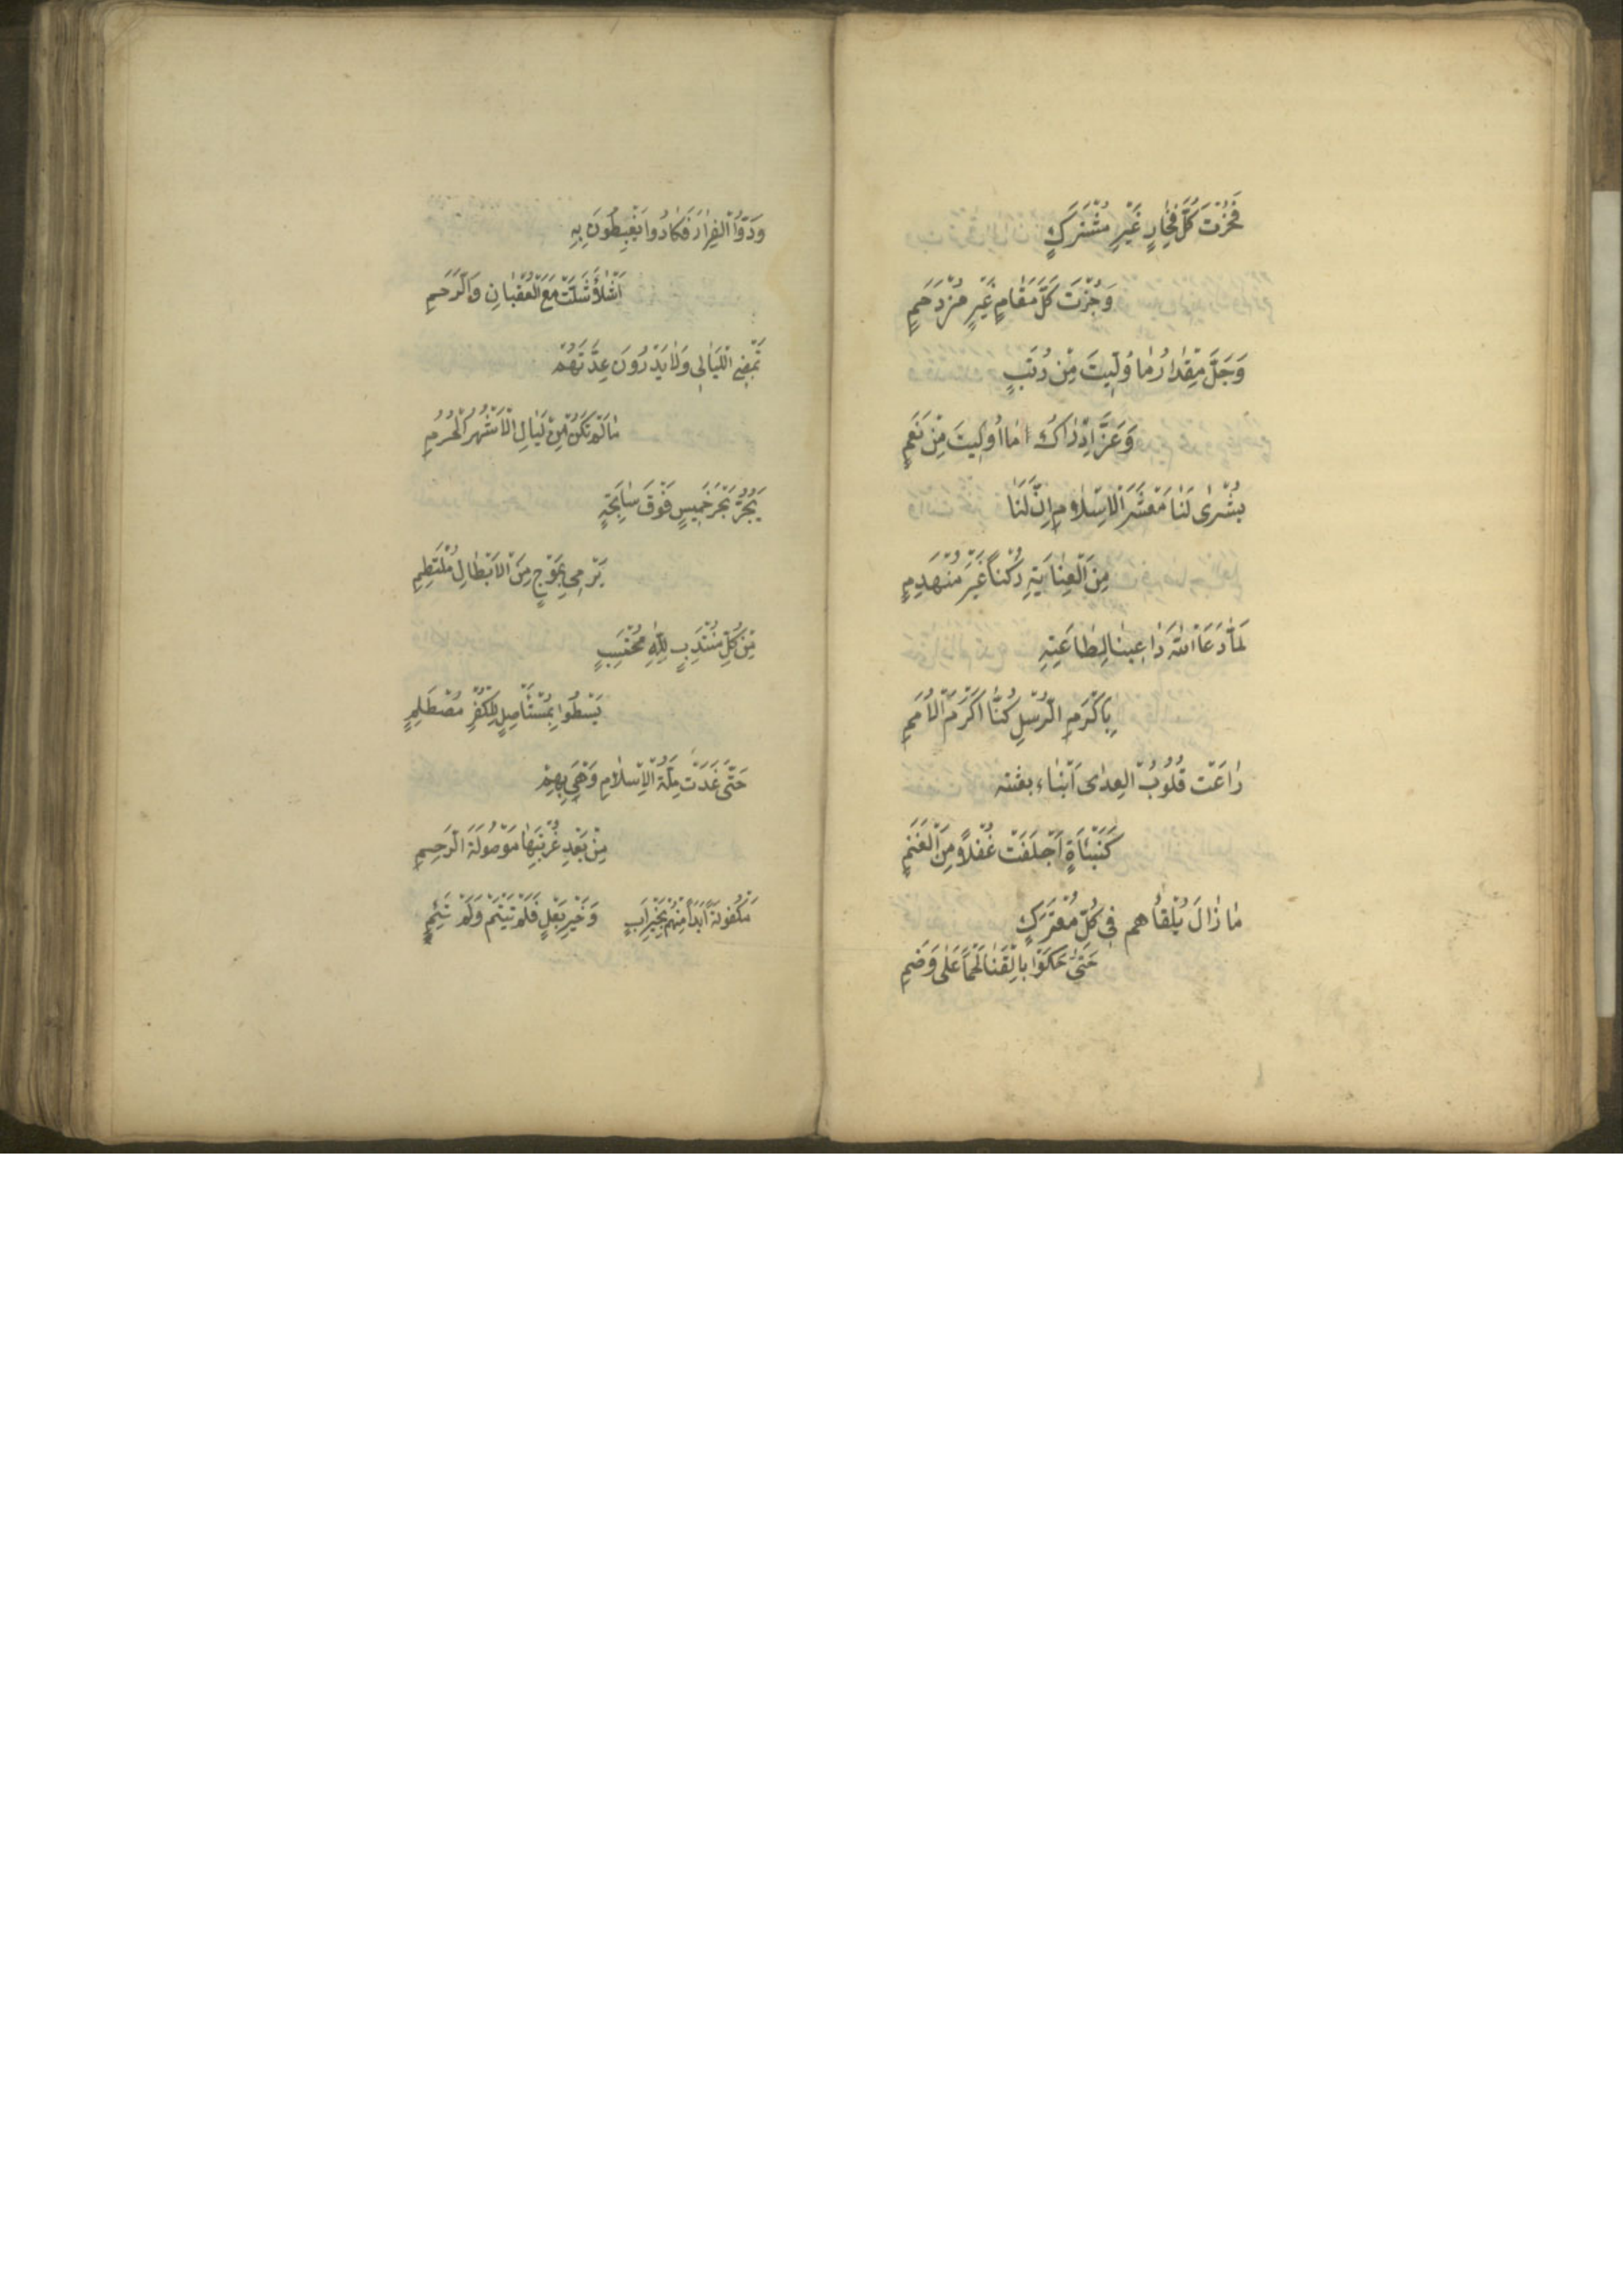 فَحُزْتَ كُلَّ فَخَارٍ غَيْرِ مُشْتَرَكٍ
وَجُزْتَ كُلَّ مَقَامٍ غَيْرِ مُزْدَحَمٍ
وَجَلَّ مِقْدَارُ مَا وُلِّيتَ مِنْ رُتَبٍ
وَعَزَّ اِدْرَاكُ مَا اُولِيتَ مِنْ نَعَمٍ
بُشْرٰى لَنَا مَعْشَرَ الْاِسْلَامِ اِنَّ لَنَا
مِنَ الْعِنَايَةِ رُكْنًا غَيْرَ مُنْهَدِمٍ
لَمَّا دَعَا اللهُ دَاعِينَا لِطَاعَتِهِ
بِاَكْرَمِ الرُّسْلِ كُنَّا اَكْرَمَ الْاُمَمِ
رَاعَتْ قُلُوبُ الْعِدٰى اَنْبَاء بعثته
كَنَبْئَاةٍ اَجْفَلَتْ غُفْلًا مِنَ الْغَنَمِ
مَا زَالَ يَلْقَاهم فِى كُلِّ مُعْتَرَكٍ
حَتّٰى حَكَوْا بِالْقَنَا لَحْمًا عَلٰى وَضَمِ
وَدُّوا الْفِرَارَ فَكَادُوا يَغْبِطُونَ بِهِ
اَشْلَاءً شَالَتْ مَعَ الْعُقْبَانِ وَالرَّخَمِ
تَمْضِى اللَّيَالِى وَلَا يَدْرُونَ عِدَّتَهَا
مَا لَمْ تَكُنْ مِنْ لَيَالِ الْاَشْهُرِ الْحُرُمِ
يَجُرُّ بَحْرَ خَمِيسٍ فَوْقَ سَابِحَةٍ
يَرْمِى بِمَوْجٍ مِنَ الْاَبْطَالِ مُلْتَطِمِ
مِنْ كُلِّ مُنْتَدِبٍ لِلّٰهِ مُحْتَسِبٍ
يَسْطُوا بِمُسْتَأْصِلٍ لِلْكُفْرِ مُصْطَلِمٍ
حَتّٰى غَدَتْ مِلَّةُ الْاِسْلَامِ وَهْىَ بِهِمْ
مِنْ بَعْدِ غُرْبَتِهَا مَوْصُولَةَ الرَّحِمِ
مَكْفُولَةً اَبَدًا مِنْهُمْ بِخَيْرِ اَبٍ وَخَيْرِ بَعْلٍ فَلَمْ تَيْتَمْ وَلَمْ تَئِمِ